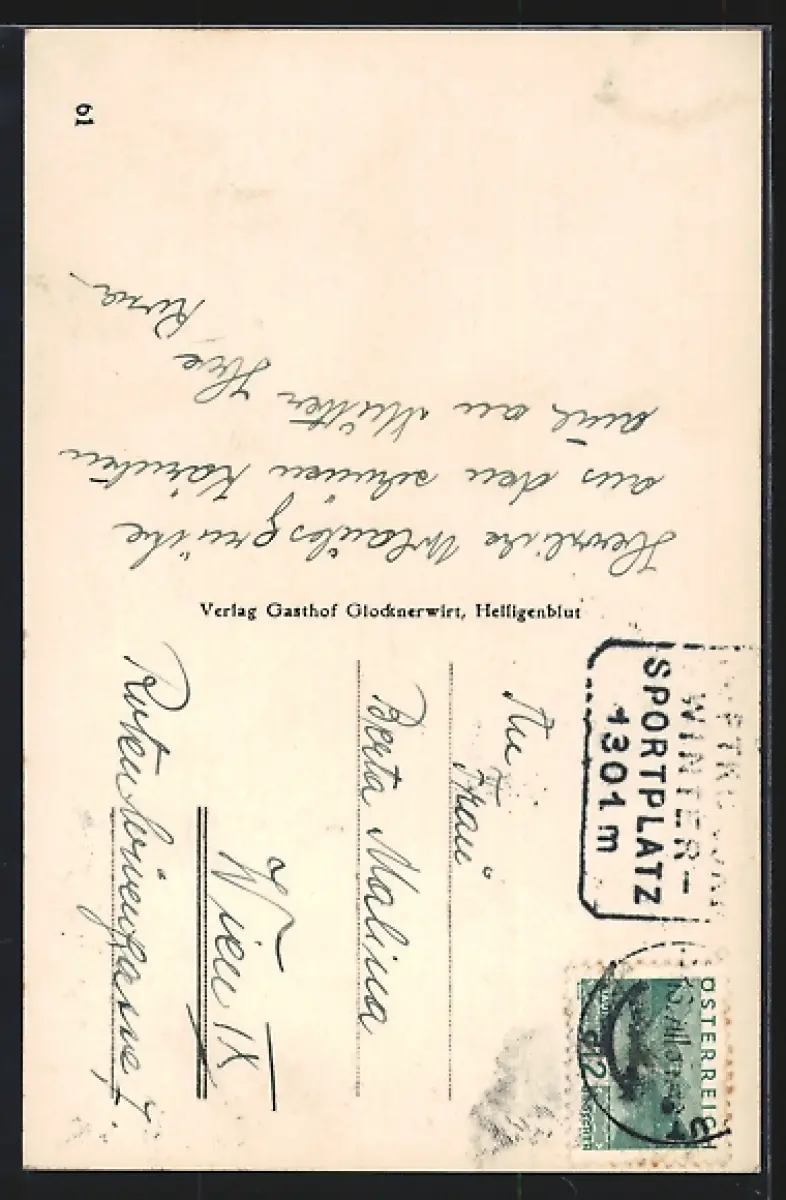 Herzliche Urlaubsgrüße
aus den schönen Kärnten
auch an Mutter Ihre
Rosa
61
Verlag Gasthof Glocknerwirt, Heiligenblut
WINTER-
SPORTPLATZ
1301 m
ÖSTERREICH
12
An
Frau
Berta Malina
Wien IX
Rotenlöwengasse 7.